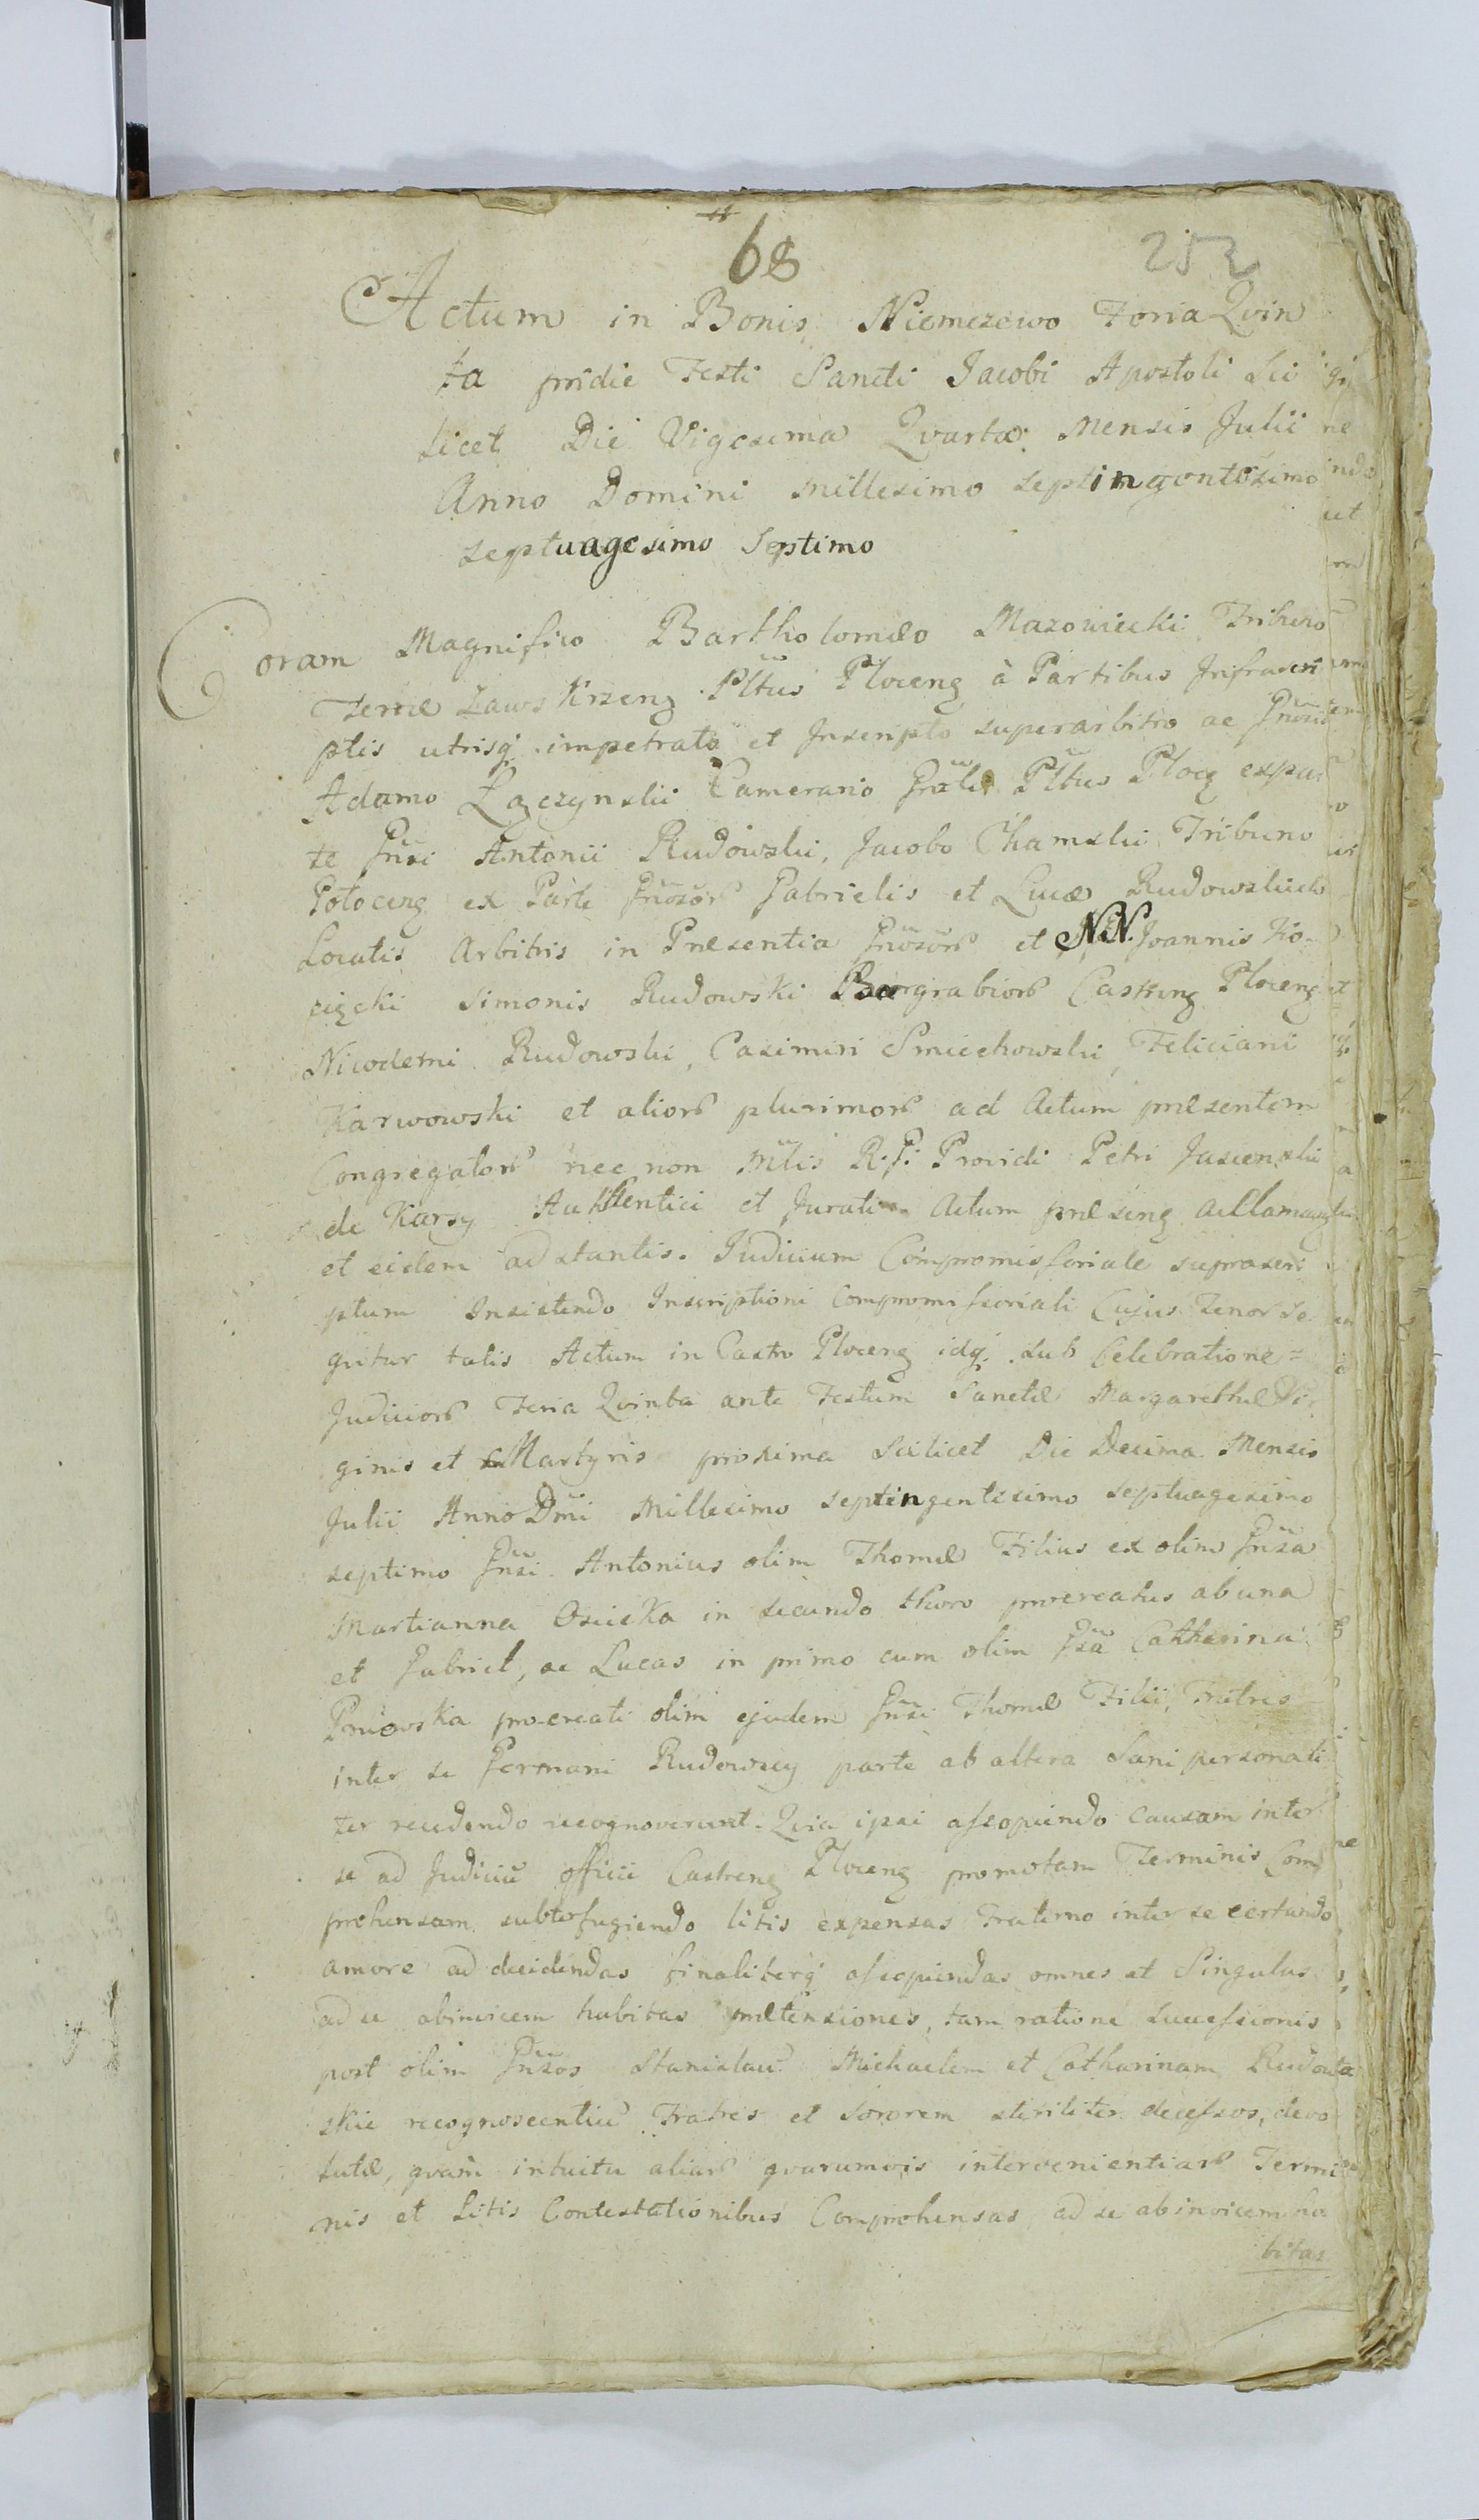 68
252
Actum in Bonis Niemczewo Feria Qvin
ta pridie Festi Sancti Jacobi Apostoli Sci
licet Die Vigesima Qvarta Mensis Julii
Anno Domini Millesimo Septingentesimo
Septuagesimo Septimo
Coram Magnifico Bartholomæo Mazowiecki Tribuno
Terræ Zawskrzeng Pltũs Ploceng à Partibus Infrascri
ptis utrisq impetrato et Inscripto superarbitro ac Gnõso
Adamo Łączynski Camerario Grãli Pltũs Plocg expar
te Gnĩsi Antonii Rudowski, Jacobo Chamski Tribuno
Potoceng ex Parte Gnõsor Gabrielis et Lucæ Rudowskich
Locatis Arbitris in Præsentia Gnõsor et NN. Joannis
Simonis Rudowski Burgrabior Castreng Ploceng
Nicodemi Rudowski, Casimiri Smiechowski, Feliciani
Karwowski et alior plurimor ad Actum præsentem
Congregator nec non Mĩlis R. G. Providi Petri Jasienski
de Karsy Authentici et Jurati Actum præseng acclamang
et eidem adstantis. Judicium Compromissoriale suprascri
ptum Insistendo Inscriptioni Compromissoriali Cujus Tenor Se
qvitur talis Actum in Castro Ploceng idq. sub Celebratione =
Judicior Feria Qvinta ante Festum Sanctæ Margarethæ Vir
ginis et Martyris proxima Scilicet Die Decima Mensis
Julii Anno Dnĩ Millesimo septingentesimo septuagesimo
septimo Gnĩsi Antonius olim Thomæ Filius ex olim Gnĩsa
Martianna Osiecka in secundo thoro procreatus ab una
et Gabriel, ac Lucas in primo cum olim Gsã Catharina
procreati olim ejudem Gnĩsi Thomæ Filii, Fratres
inter se Germani Rudowscy parte ab altera Sani personali
ter recedendo recognoverunt. Qvia ipsi assopiendo causam inter
se ad Judiciũ officii Castreng Ploceng promotam Terminis Com
prehensam subterfugiendo litis expensas Fraterno inter se certando
amore ad decidendas finaliterq assopiendas omnes et Singulas
ad se abinvicem habitas prætensiones, tam ratione successionis
post olim Gnĩsos Stanislaũ Michaelem et Catharinam Rudow
skie recognoscentiũ Fratres et Sororem steriliter decessos, devo
lutæ, qvàm intuitu aliar qvarumvis intervenientiar Termi
nis et Litis Contestationibus Comprehensas, ad se abinvicem ha
bitas